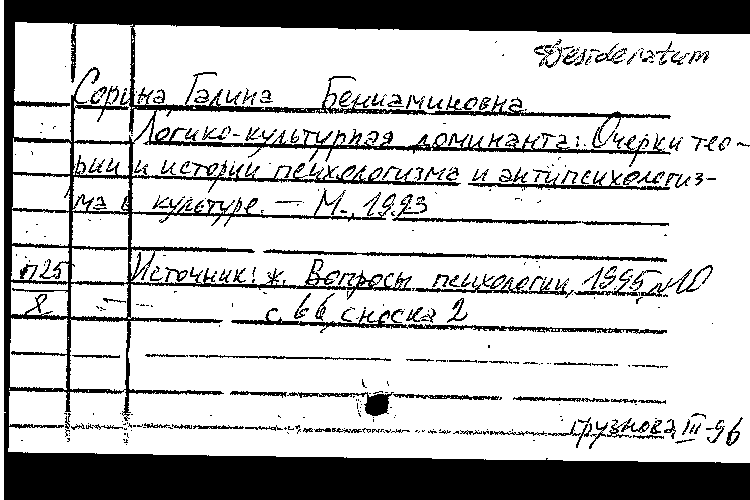 Desideratum
Сорина Галина Бениаминовна
Логико-культурная доминанта: Очерки тео-
рии и истории психологизма и антипсихологиз-
ма в культуре. — М., 1993
п25 Источник: ж. Вопросы психологии, 1995, №10
8 с. 66, сноска 2
грузнова, III-96